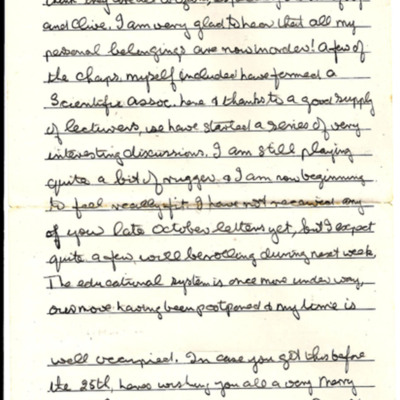 and Clive. I am very glad to hear that all my
personal belongings are now in order! A few of
the chaps, myself included have formed a
Scientific Assoc. here & thanks to a good supply
of lecturers, we have started a series of very
interesting discussions. I am still playing
quite a bit of rugger & I am now beginning
to feel really fit. I have not received any
of your late October letters yet, but I expect
quite a few will be rolling during next week.
The educational system is once more under way,
our move having been postponed & my time is
well occupied. In case you get this before
the 25th, heres wishing you all a very Merry